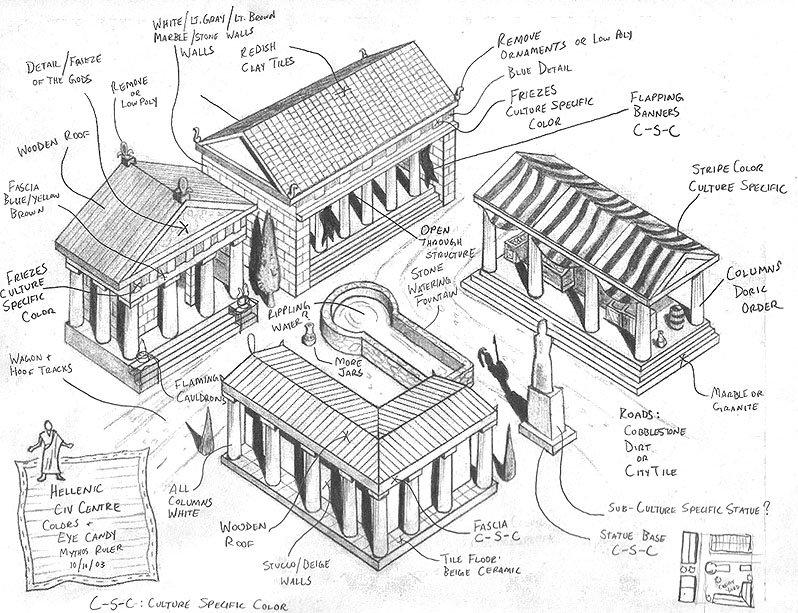 WHITE/LT. GRAY/LT. BROWN
MARBLE/STONE WALLS
WALLS
REDISH
CLAY TILES
REMOVE
ORNAMENTS OR LOW POLY
BLUE DETAIL
FRIEZES
CULTURE SPECIFIC
COLOR
FLAPPING
BANNERS
C-S-C
DETAIL/FRIEZE
OF THE GODS
REMOVE
OR
LOW POLY
WOODEN ROOF
FASCIA
BLUE/YELLOW
BROWN
FRIEZES
CULTURE
SPECIFIC
COLOR
STRIPE COLOR
CULTURE SPECIFIC
OPEN
THROUGH
STRUCTURE
STONE
WATERING
FOUNTAIN
COLUMNS
DORIC
ORDER
RIPPLING
WATER
MORE
JARS
WAGON +
HOOF TRACKS
FLAMING
CAULDRONS
MARBLE OR
GRANITE
ROADS:
COBBLESTONE
DIRT
OR
CITY TILE
HELLENIC
CIV CENTRE
COLORS +
EYE CANDY
MYTHOS RULER
10/11/03
ALL
COLUMNS
WHITE
WOODEN
ROOF
STUCCO/BEIGE
WALLS
FASCIA
C-S-C
TILE FLOOR:
BEIGE CERAMIC
SUB-CULTURE SPECIFIC STATUE?
STATUE BASE
C-S-C
C-S-C: CULTURE SPECIFIC COLOR